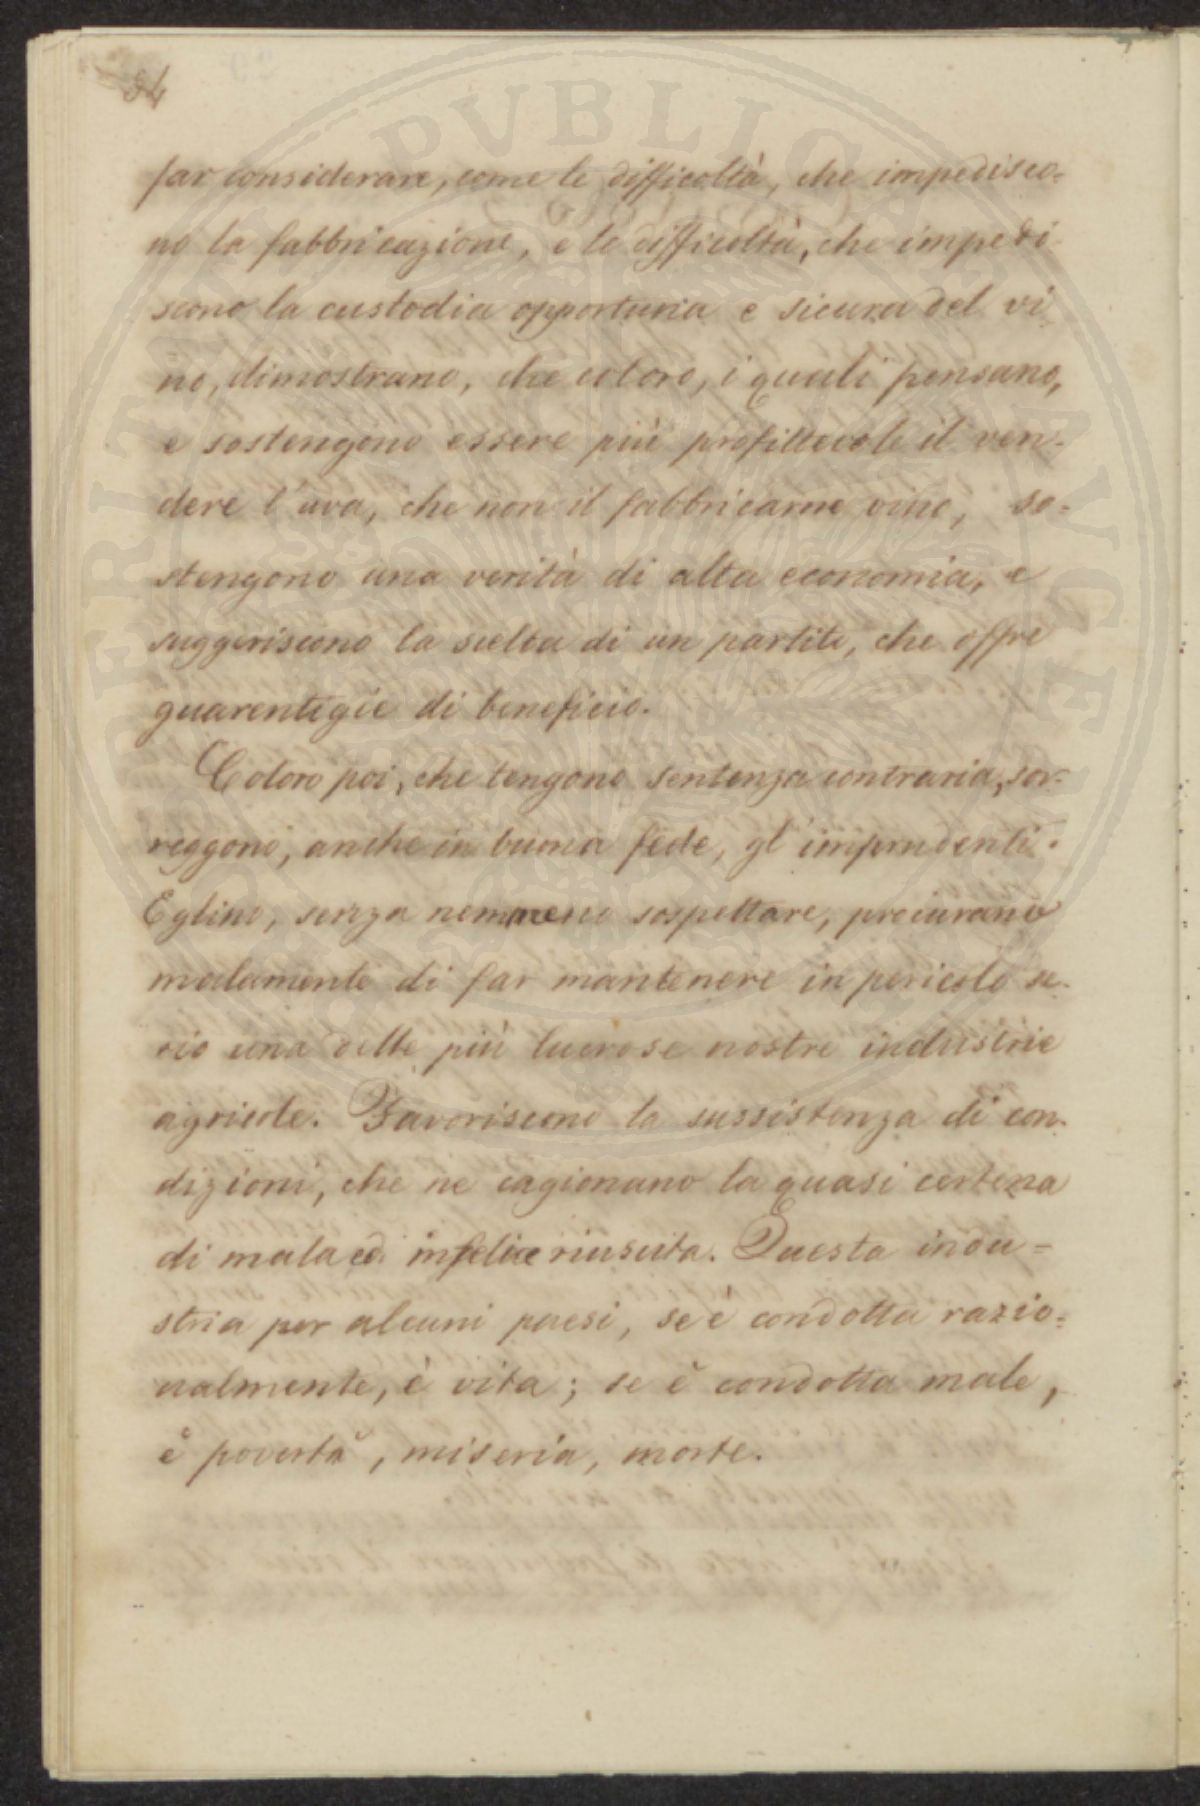 34
far considerare, come le difficoltà, che impedisco=
no la fabbricazione, e le difficoltà, che impedi=
scono la custodia opportuna e sicura del vi
no, dimostrano, che coloro, i quali pensano,
e sostengono essere più profittevole il ven=
dere l'uva, che non il fabbricarne vino, so=
stengono una verità di alta economia, e
suggeriscono la scelta di un partito, che offre
guarentigie di beneficio.
Coloro poi, che tengono sentenza contraria, sor=
reggono, anche in buona fede, gl'imprudenti.
Eglino, senza nemmeno sospettare, procurano
malamente di far mantenere in pericolo se=
rio una delle più lucrose nostre industrie
agricole. Favoriscono la sussistenza di con=
dizioni, che ne cagionano la quasi certezza
di mala ed infelice riuscita. Questa indu=
stria per alcuni paesi, se è condotta razio=
nalmente, è vita; se è condotta male,
è povertà, miseria, morte.